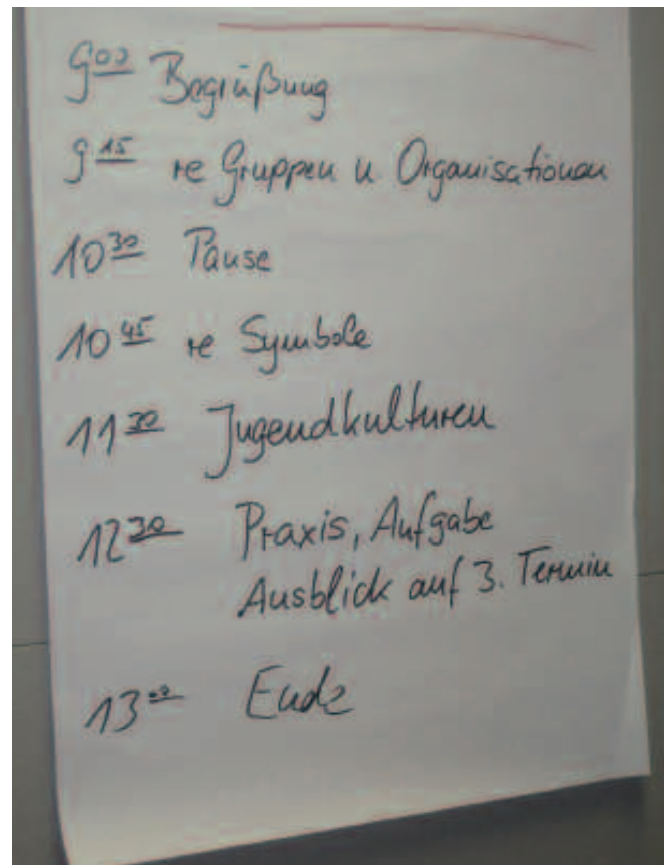 9⁰⁰ Begrüßung
9¹⁵ re Gruppen u Organisationen
10³⁰ Pause
10⁴⁵ re Symbole
11³⁰ Jugendkulturen
12³⁰ Praxis, Aufgabe
Ausblick auf 3. Termin
13⁰⁰ Ende